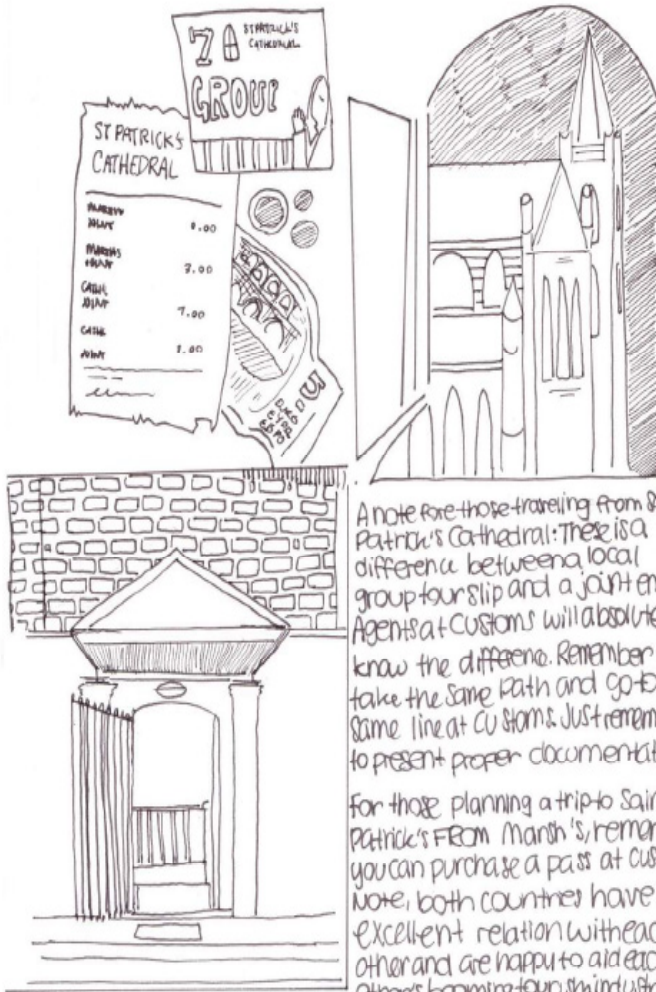 7 ST PATRICK'S
CATHEDRAL
GROUP
ST PATRICK'S
CATHEDRAL
JOINT 8.00
MARSH'S
3.00
CATH.
JOINT 7.00
JOINT 8.00
A note fore those traveling from S
Patrick's Cathedral: There is a
difference between a local
group tour slip and a joint en
Agents at Customs will absolute
know the difference. Remember
take the same Path and go to
same line at Customs. Just remem
to present proper documentat
For those planning a trip to Sain
Patrick's FROM Marsh's, remem
you can purchase a pass at cus
Note, both countries have
excellent relation with eac
other and are happy to aid eac
other's booming tourism industr